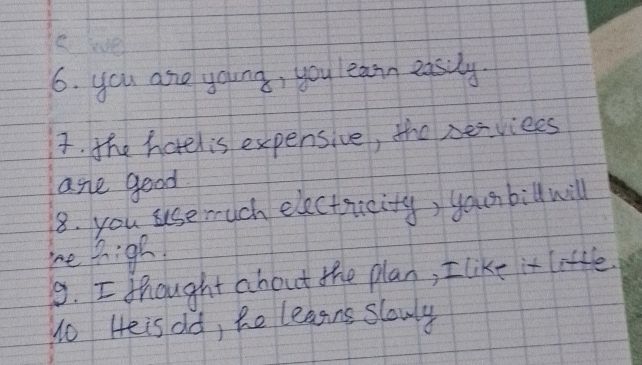 6. you are young, you learn easily.
7. the hotel is expensive, the services
are good
8. you use much electricity, your bill will
be high.
9. I thought about the plan, I like it little.
10 He is old, he learns slowly